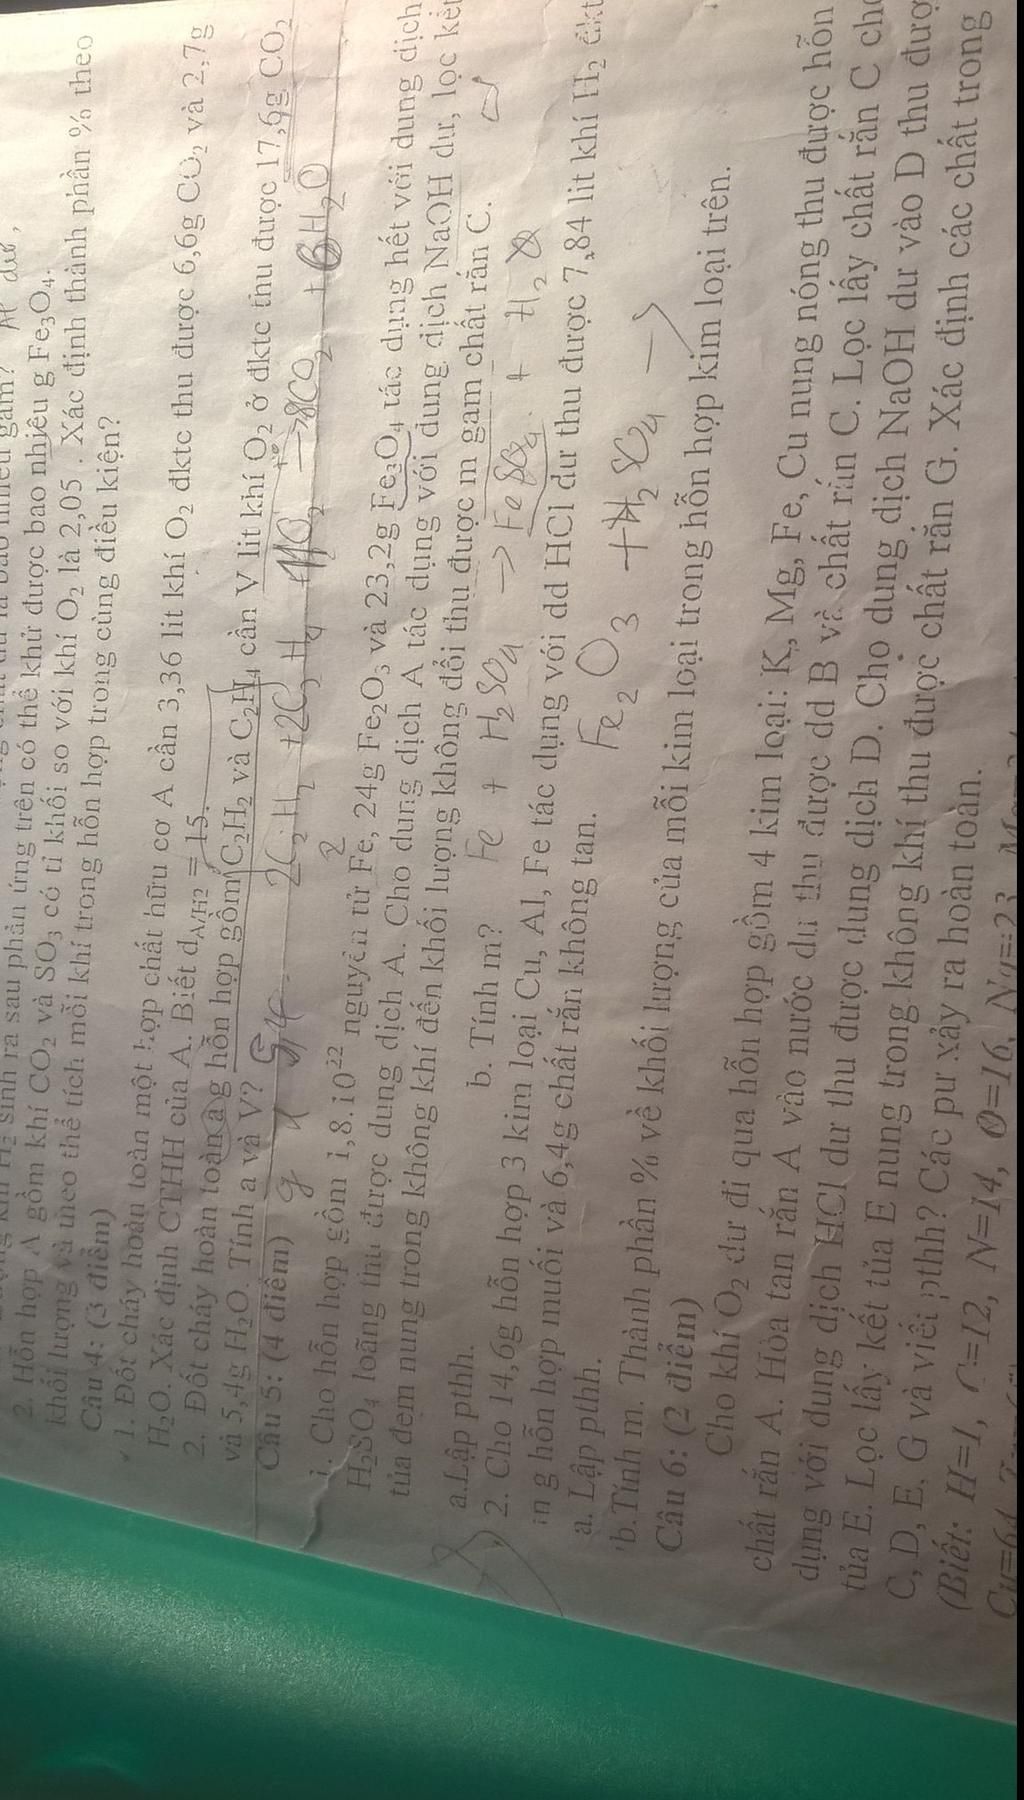 sinh ra sau phản ứng trên có thể khử được bao nhiêu g Fe₃O₄.
2. Hỗn hợp A gồm khí CO₂ và SO₃ có tỉ khối so với khí O₂ là 2,05 . Xác định thành phần % theo
khối lượng và theo thể tích mỗi khí trong hỗn hợp trong cùng điều kiện?
Câu 4: (3 điểm)
1. Đốt cháy hoàn toàn một hợp chất hữu cơ A cần 3,36 lit khí O₂ đktc thu được 6,6g CO₂ và 2,7g
H₂O. Xác định CTHH của A. Biết d_A/H2 = 15.
2. Đốt cháy hoàn toàn a g hỗn hợp gồm C₂H₂ và C₂H₄ cần V lit khí O₂ ở đktc thu được 17,6g CO₂
và 5,4g H₂O. Tính a và V?
Câu 5: (4 điểm)
1. Cho hỗn hợp gồm 1,8.10²² nguyên tử Fe, 24g Fe₂O₃ và 23,2g Fe₃O₄ tác dụng hết với dung dịch
H₂SO₄ loãng thu được dung dịch A. Cho dung dịch A tác dụng với dung dịch NaOH dư, lọc kết
tủa đem nung trong không khí đến khối lượng không đổi thu được m gam chất rắn C.
a.Lập pthh. b. Tính m? Fe + H₂SO₄ → FeSO₄ + H₂
2. Cho 14,6g hỗn hợp 3 kim loại Cu, Al, Fe tác dụng với dd HCl dư thu được 7,84 lit khí H₂ đkt
m g hỗn hợp muối và 6,4g chất rắn không tan.
a. Lập pthh. Fe₂O₃ + H₂SO₄ →
b.Tính m. Thành phần % về khối lượng của mỗi kim loại trong hỗn hợp kim loại trên.
Câu 6: (2 điểm)
Cho khí O₂ dư đi qua hỗn hợp gồm 4 kim loại: K, Mg, Fe, Cu nung nóng thu được hỗn
chất rắn A. Hòa tan rắn A vào nước dư thu được dd B và chất rắn C. Lọc lấy chất rắn C
dụng với dung dịch HCl dư thu được dung dịch D. Cho dung dịch NaOH dư vào D thu
tủa E. Lọc lấy kết tủa E nung trong không khí thu được chất rắn G. Xác định các chất trong
C, D, E, G và viết pthh? Các pư xảy ra hoàn toàn.
(Biết: H=1, C=12, N=14, O=16, Na=23
Cu=64